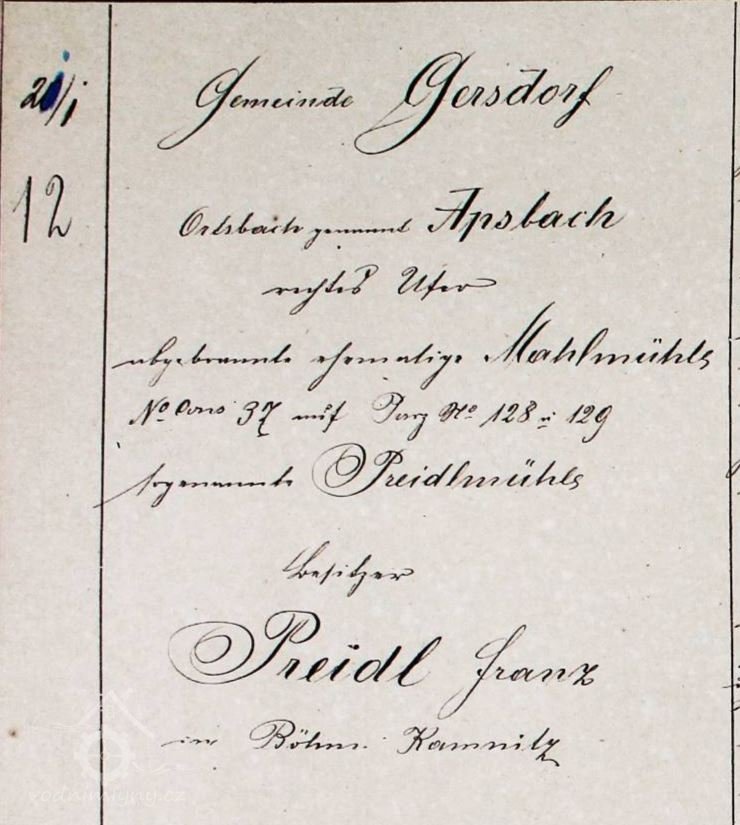 Gemeinde Gersdorf
12
Ortsbach genannt Apsbach
rechtes Ufer
abgebrannte ehemalige Mahlmühle
No. Cons 37 auf Parz No. 128 u. 129
sogenannte Preidlmühle
Besitzer
Preidl Franz
in Böhm. Kamnitz
vodnimlyny.cz